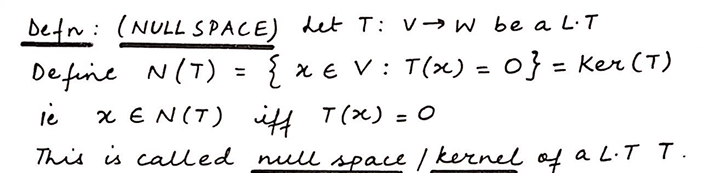 Defn: (NULL SPACE) Let T: V→W be a L.T
Define N(T) = { x ∈ V : T(x) = 0} = Ker(T)
ie x ∈ N(T) iff T(x) = 0
This is called null space / kernel of a L.T T.